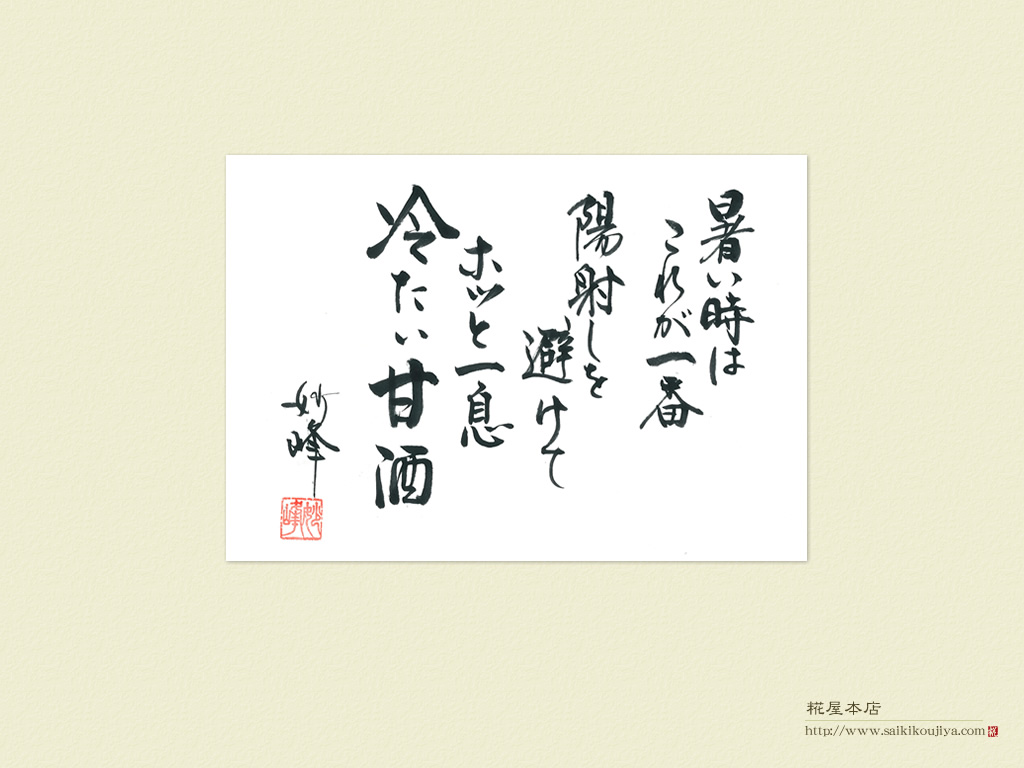 暑い時は
これが一番
陽射しを
避けて
ホッと一息
冷たい甘酒
妙峰
妙峰
糀屋本店
http://www.saikikoujiya.com
糀